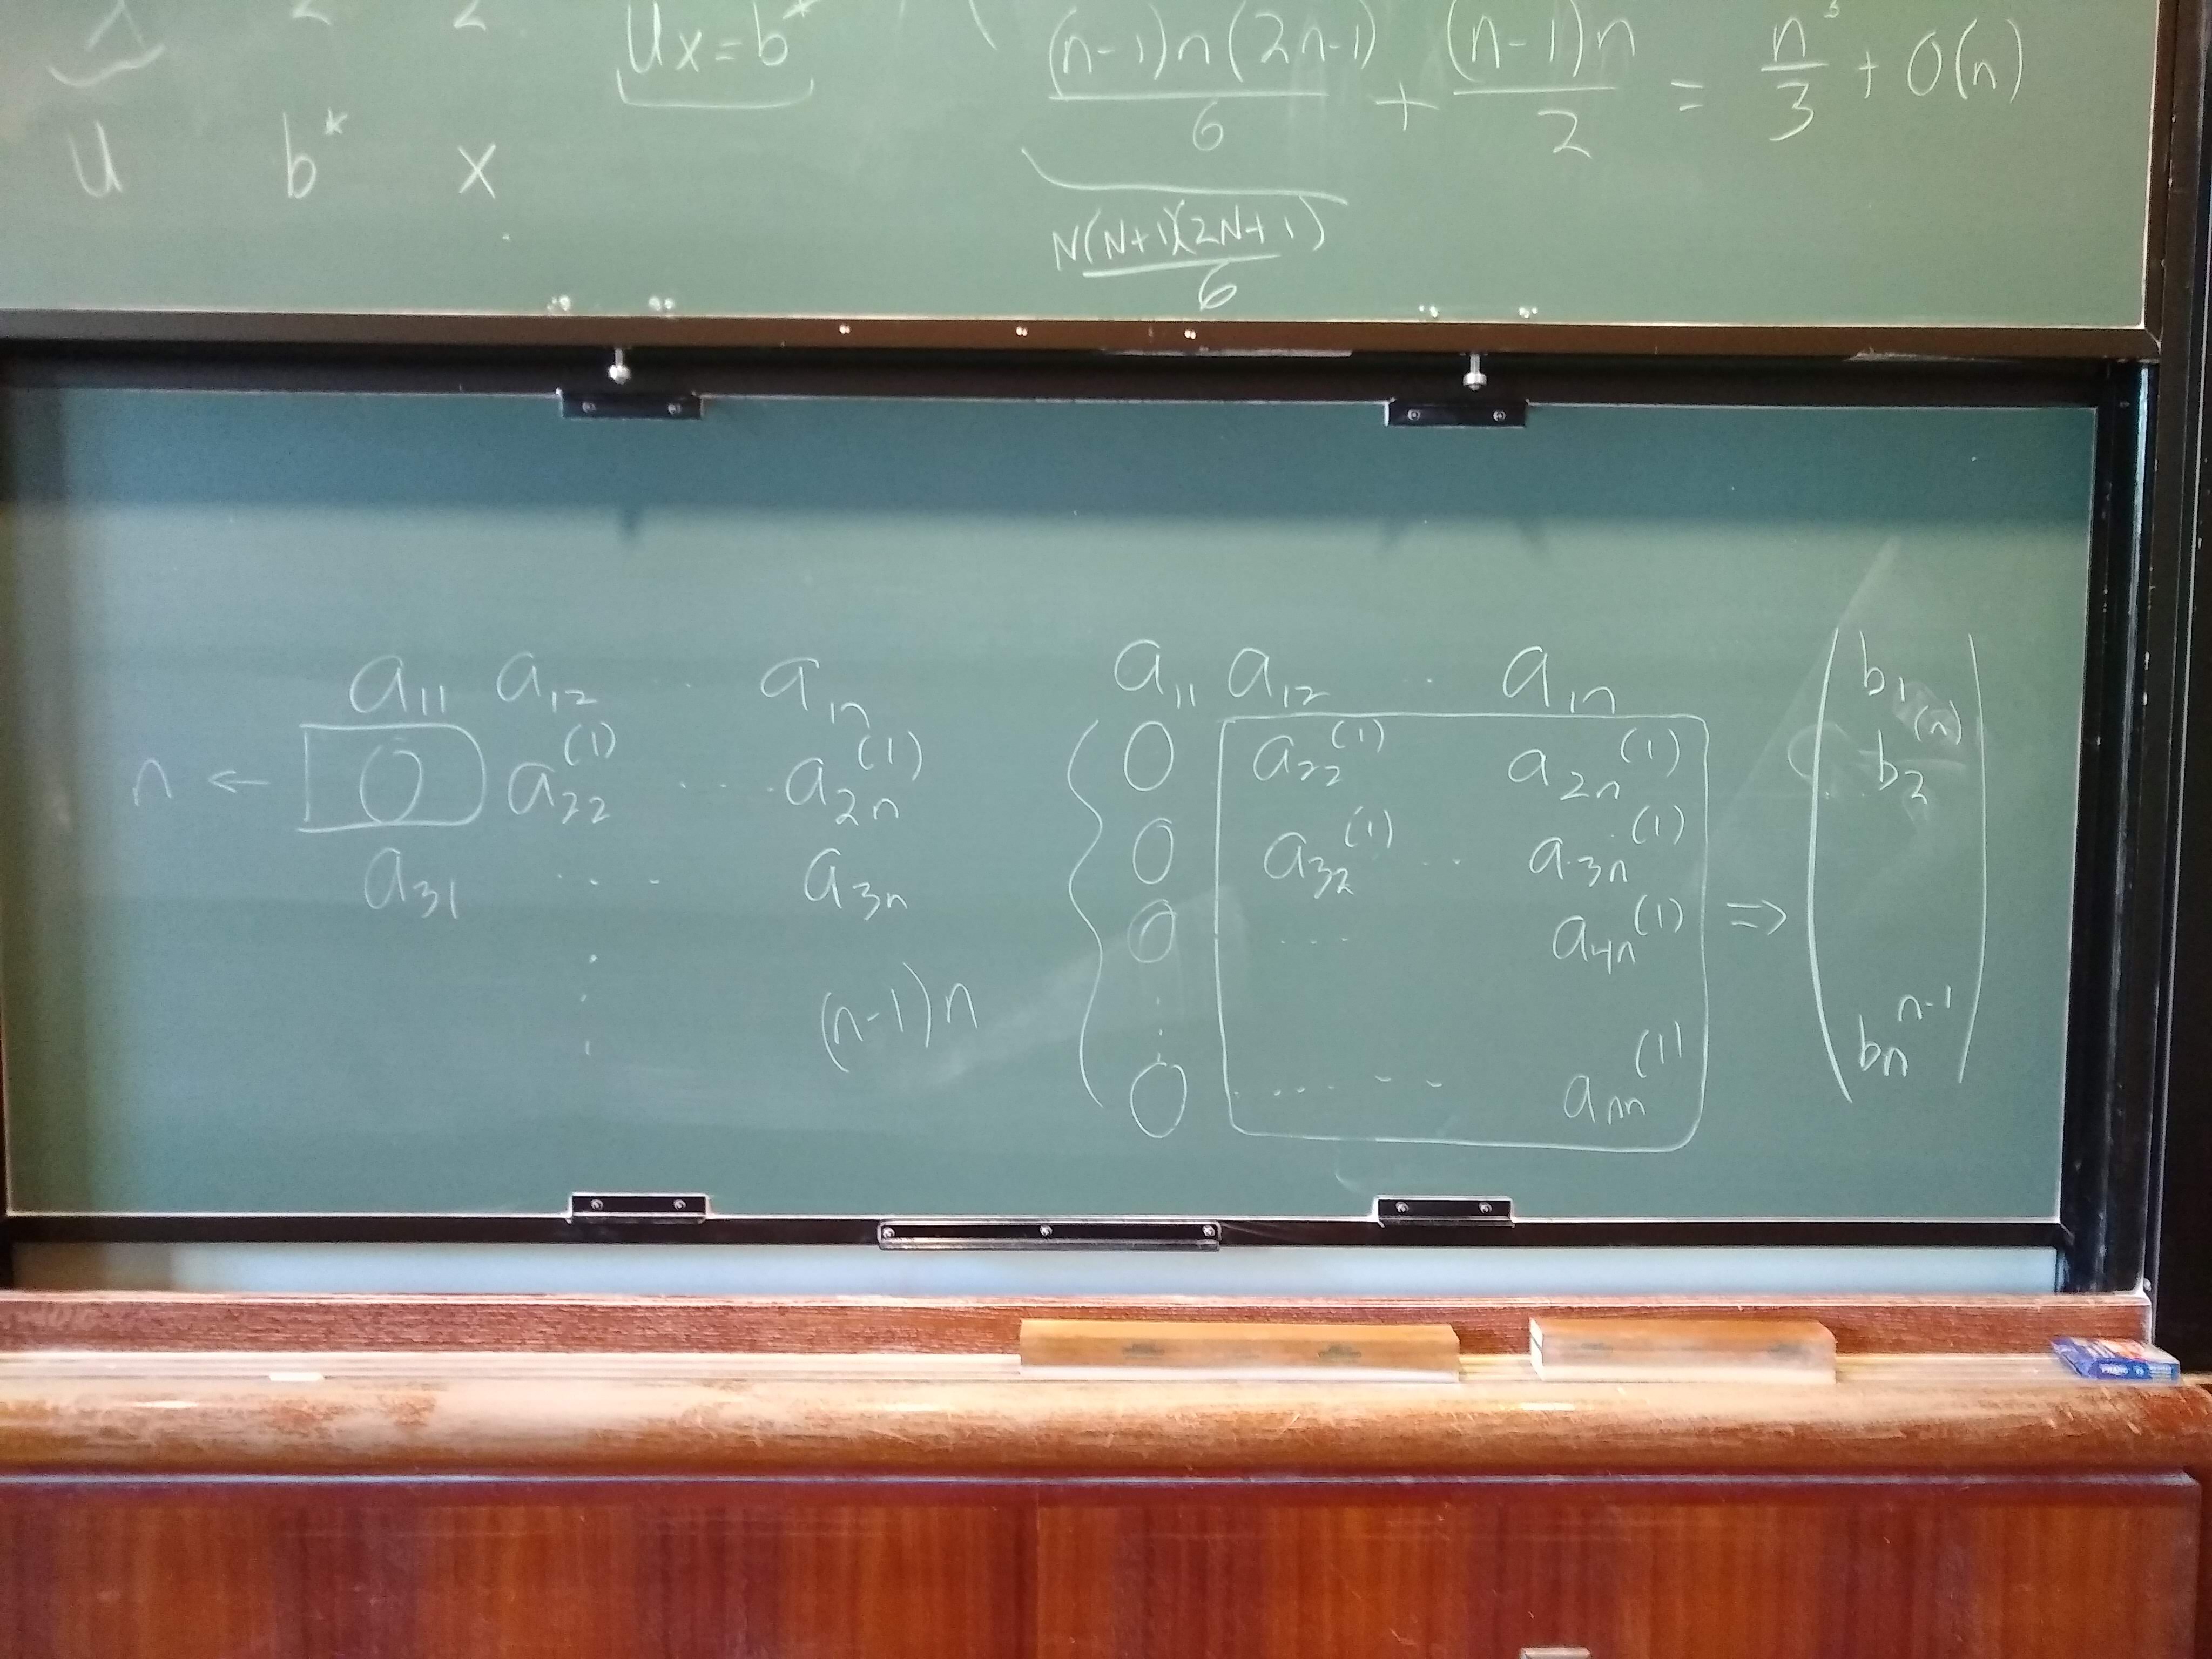 Ux=b*
(n-1)n(2n-1)/6 + (n-1)n/2 = n³/3 + O(n)
u b* x
N(N+1)(2N+1)/6
a₁₁ a₁₂ . a₁ₙ
n ← 0 a₂₂⁽¹⁾ ..... a₂ₙ⁽¹⁾
a₃₁ .... a₃ₙ
(n-1)n
a₁₁ a₁₂ . a₁ₙ
0 a₂₂⁽¹⁾ a₂ₙ⁽¹⁾
0 a₃₂⁽¹⁾ .. a₃ₙ⁽¹⁾
0 .... a₄ₙ⁽¹⁾
0 ....... aₙₙ⁽¹⁾
⇒
b₁
b₂⁽ⁿ⁾
bₙⁿ⁻¹